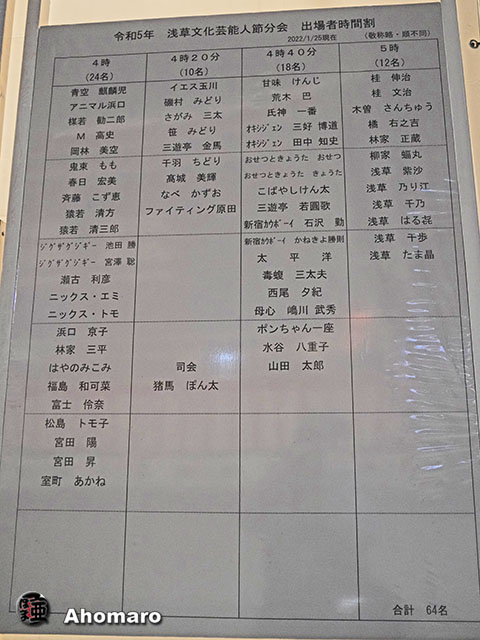 令和5年 浅草文化芸能人節分会 出場者時間割
2022/1/25現在 (敬称略・順不同)
4時
(24名)
青空 麒麟児
アニマル浜口
楳若 勧二郎
M 高史
岡林 美空
鬼東 もも
春日 宏美
斉藤 こず恵
猿若 清方
猿若 清三郎
ジグザグジギー 池田 勝
ジグザグジギー 宮澤 聡
瀬古 利彦
ニックス・エミ
ニックス・トモ
浜口 京子
林家 三平
はやのみこみ
福島 和可菜
富士 伶奈
松島 トモ子
宮田 陽
宮田 昇
室町 あかね
4時20分
(10名)
イエス玉川
磯村 みどり
さがみ 三太
笹 みどり
三遊亭 金馬
千羽 ちどり
髙城 美輝
なべ かずお
ファイティング原田
司会
猪馬 ぽん太
4時40分
(18名)
甘味 けんじ
荒木 巴
氏神 一番
オキシジェン 三好 博道
オキシジェン 田中 知史
おせつときょうた おせつ
おせつときょうた きょうた
こばやしけん太
三遊亭 若圓歌
新宿カウボーイ 石沢 勤
新宿カウボーイ かねきよ勝則
太 平 洋
毒蝮 三太夫
西尾 夕紀
母心 嶋川 武秀
ポンちゃん一座
水谷 八重子
山田 太郎
5時
(12名)
桂 伸治
桂 文治
木曽 さんちゅう
橘 右之吉
林家 正蔵
柳家 蝠丸
浅草 紫沙
浅草 乃り江
浅草 千乃
浅草 はる㐂
浅草 千歩
浅草 たま晶
合計 64名
Ahomaro